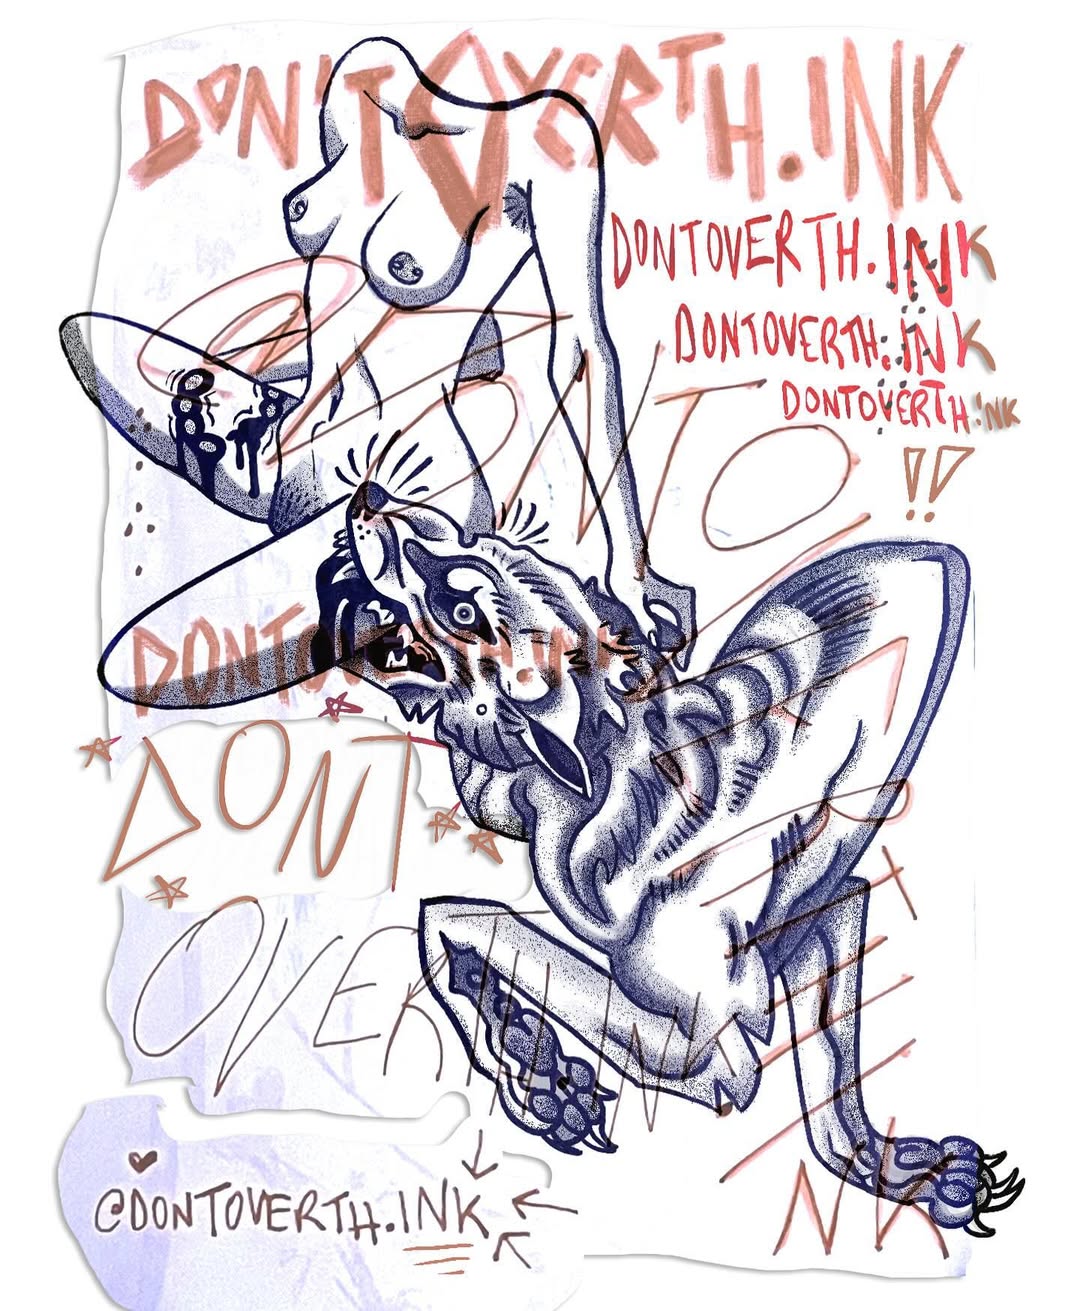 DON'TOVERTH.INK
DONTOVERTH.INK
DONTOVERTH.INK
DONTOVERTH.INK
!!
@DONTO
VERTH.INK
DONTOVERTH.INK
DONT
OVERTHINK.
@DONTOVERTH.INK